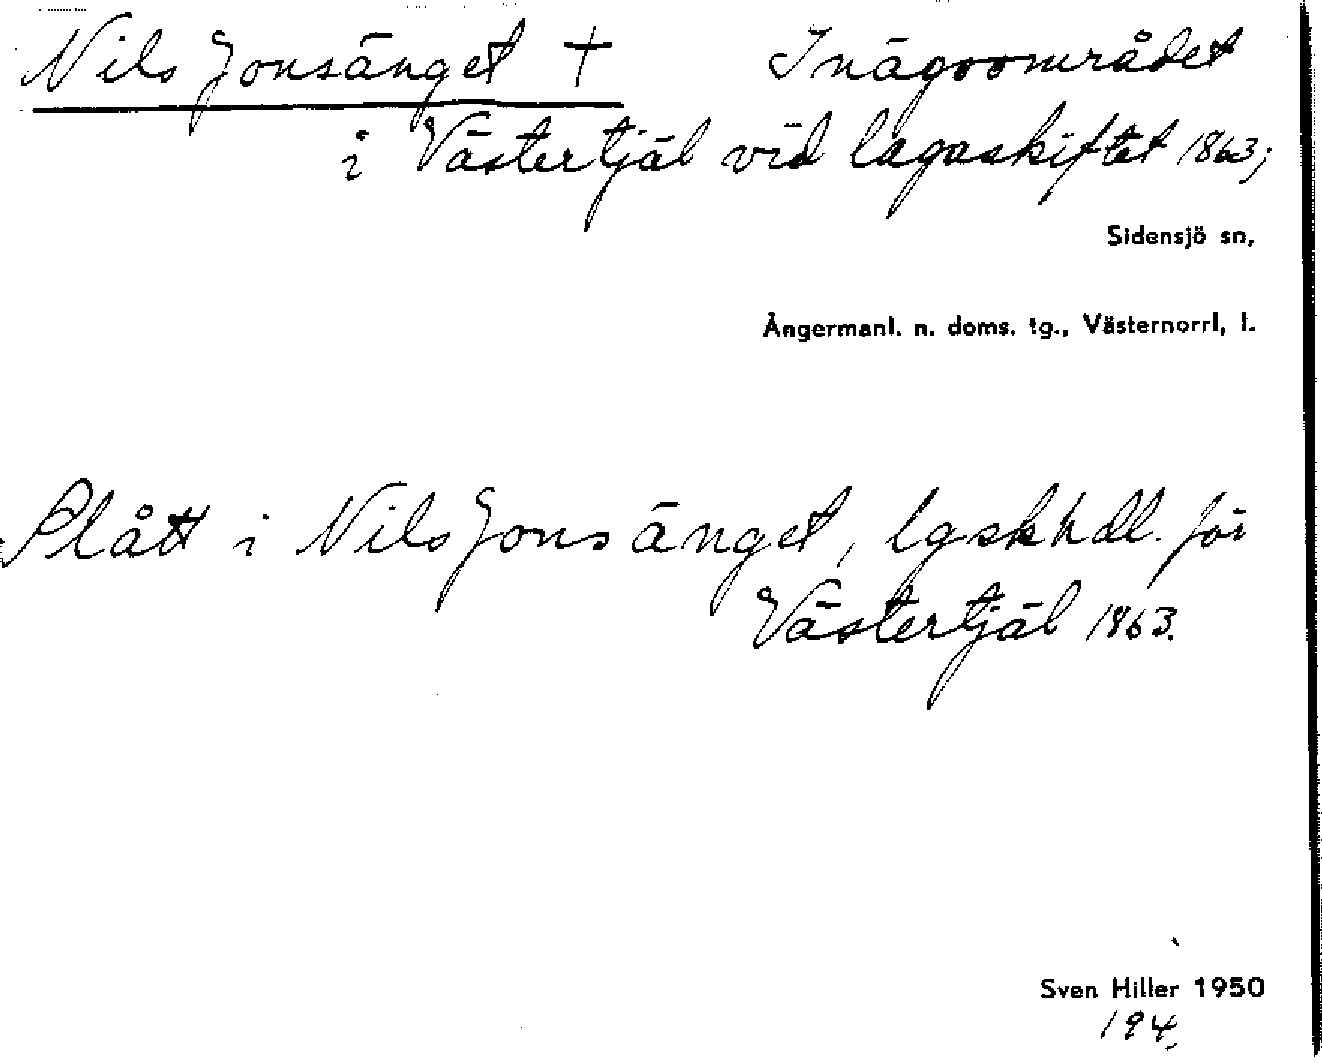 Nils Jonsänget † Inägoområdet
i Västertjäl vid lagaskiftet 1863;
Sidensjö sn,
Ångermanl. n. doms. tg., Västernorrl. l.
Slått i Nils Jonsänget, lgskhdl. för
Västertjäl 1863.
Sven Hiller 1950
194.